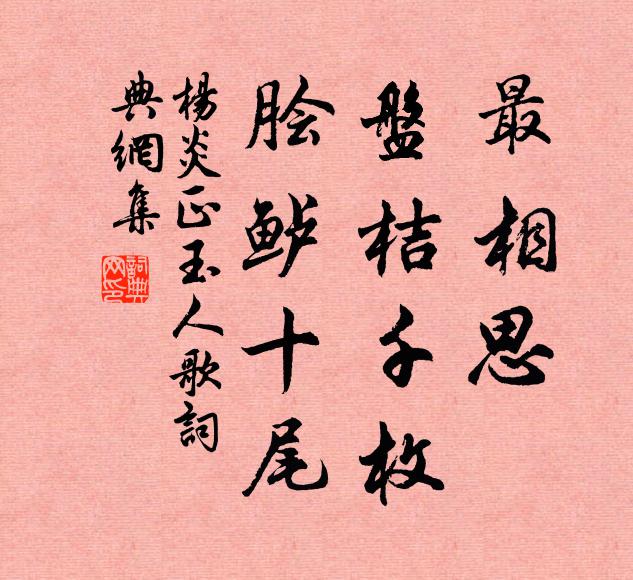 最相思
盤桔千枚
脍鲈十尾
楊炎正玉人歌詞
典網集
詞典網印